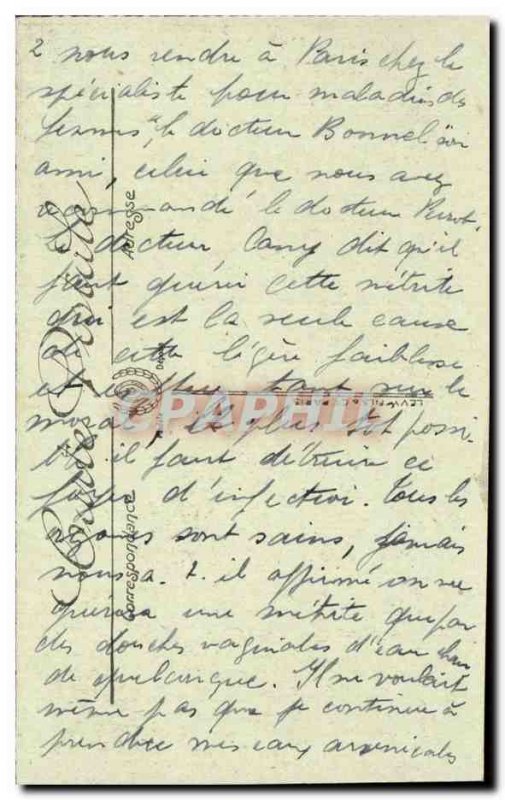 2 nous rendre à Paris chez le
spécialiste pour maladies de
femmes, le docteur Bonnel "son
ami, celui que nous avez
recommandé le docteur
Le docteur, Camy dit qu'il
faut guérir cette métrite
qui est la seule cause
de cette légère faiblesse
et tant sur le
moral, le plus tôt possi-
ble il faut détruire ce
foyer d'infection. Tous les
organes sont sains, jamais
nous a-t-il affirmé on ne
guérira une métrite que par
des douches vaginales d'eau
de quelconque. Il ne voulait
même pas que je continue à
prendre mes eaux arsenicales
Carte Postale
Adresse
Correspondance
CPAPHIL